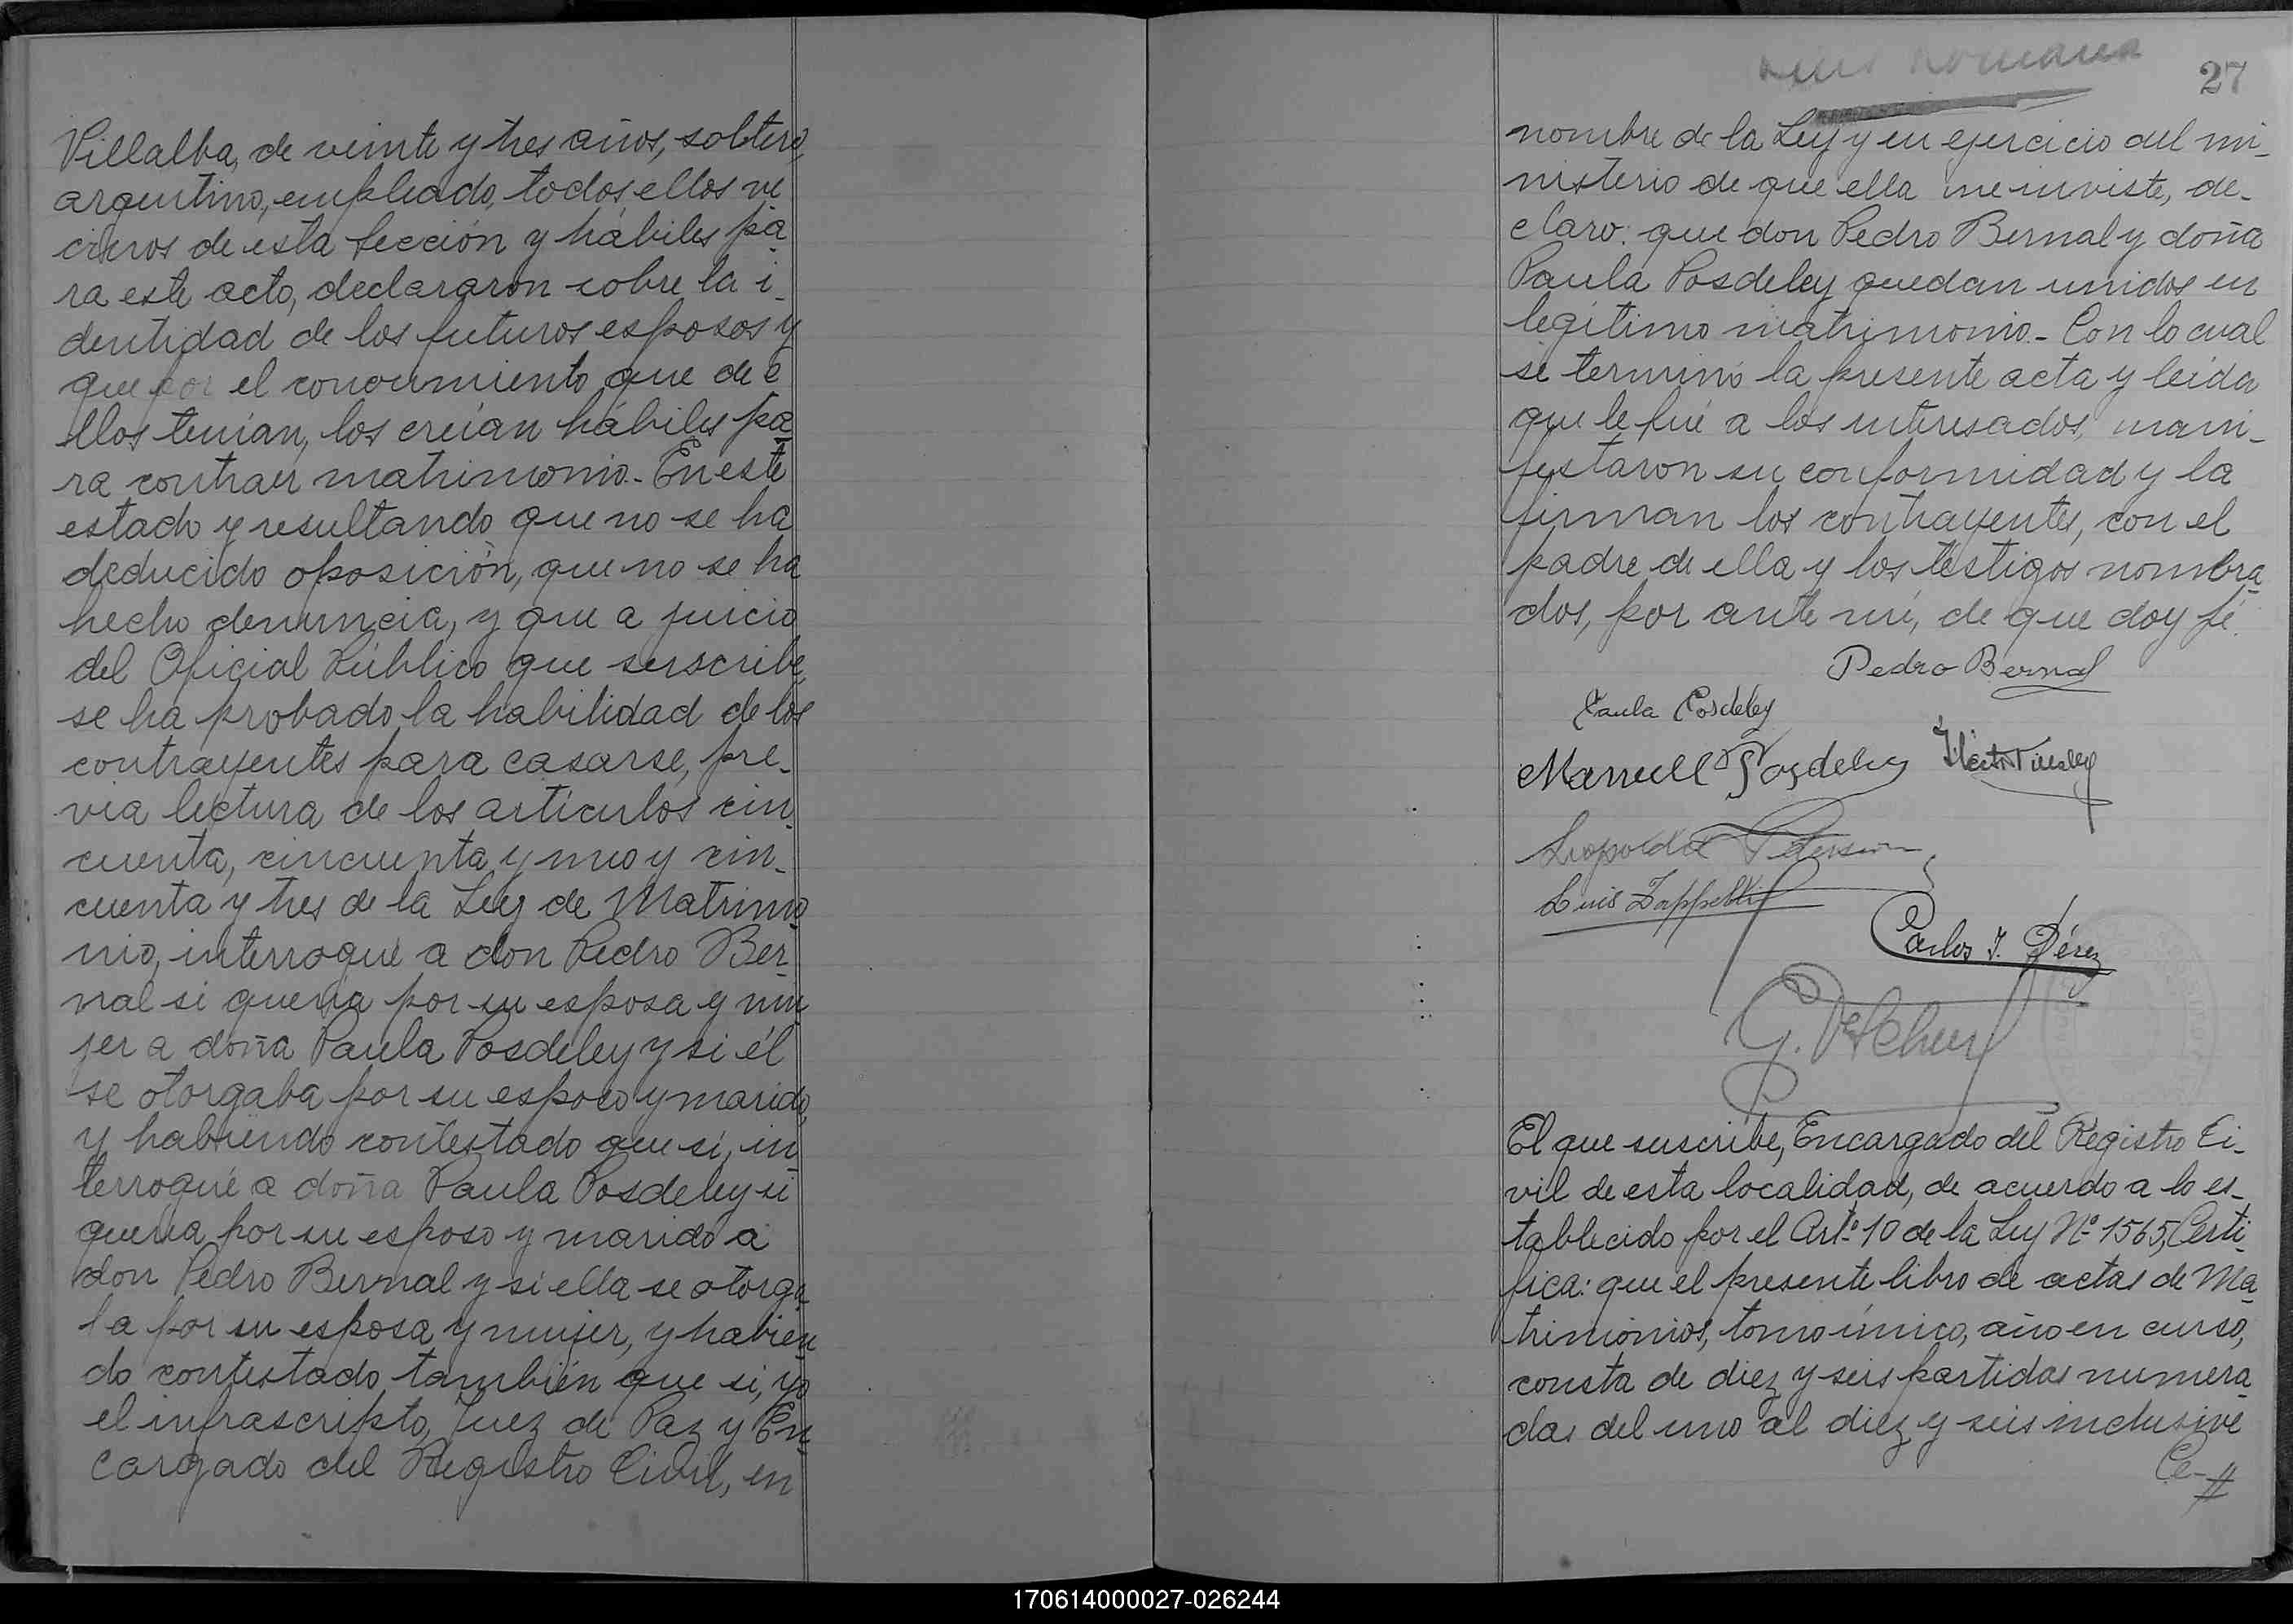 Villalba, de veinte y tres años, soltero,
argentino, empleado, todos ellos ve
cinos de esta sección y hábiles pa
ra este acto, declararon sobre la i-
dentidad de los futuros esposos y
que por el conocimiento que de e
llos tenían, los creían hábiles pa
ra contraer matrimonio.- En este
estado y resultando que no se ha
deducido oposición, que no se ha
hecho denuncia, y que a juicio
del Oficial Público que suscribe,
se ha probado la habilidad de los
contrayentes para casarse, pre-
via lectura de los artículos cin
cuenta, cincuenta y uno y cin-
cuenta y tres de la Ley de Matrimo
nio, interrogué a don Pedro Ber-
nal si quería por su esposa y mu
jer a doña Paula Posdeley y si él
se otorgaba por su esposo y marido,
y habiendo contestado que sí, in
terrogué a doña Paula Posdeley si
quería por su esposo y marido a
don Pedro Bernal y si ella se otorga
ba por su esposa y mujer, y habien
do contestado también que si, yo
el infrascripto, Juez de Paz y En
cargado del Registro Civil, en
27
nombre de la Ley y en ejercicio del mi-
nisterio de que ella me inviste, de-
claro: que don Pedro Bernal y doña
Paula Posdeley quedan unidos en
legítimo matrimonio.- Con lo cual
se terminó la presente acta y leida
que le fué a los interesados, mani-
festaron su conformidad y la
firman los contrayentes, con el
padre de ella y los testigos nombra
dos, por ante mí, de que doy fé.
Pedro Bernal
Paula Posdeley
Manuell Posdeley
Leopoldo
Luis Zappetti
Carlos J. Pérez
El que suscribe, Encargado del Registro Ci-
vil de esta localidad, de acuerdo a lo es-
tablecido por el Art.º 10 de la Ley Nº 1565, Certi
fica: que el presente libro de actas de Ma
trimonios, tomo único, año en curso,
consta de diez y seis partidas numera
das del uno al diez y seis inclusive
Ce-//
170614000027-026244